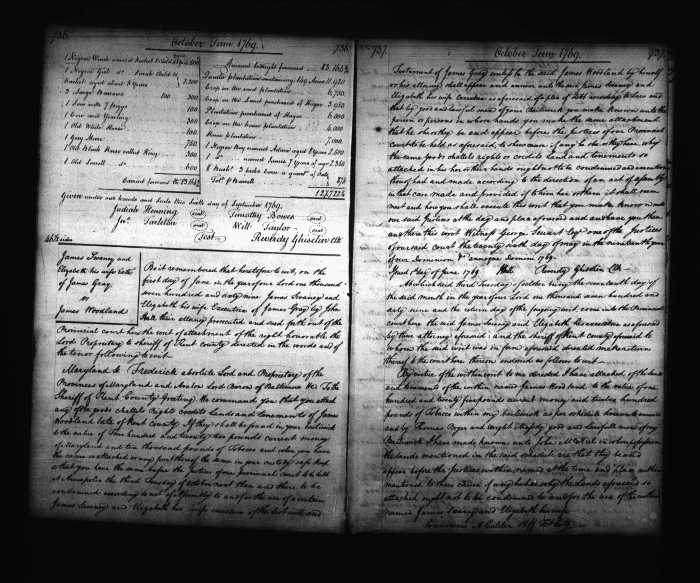 736. October Term 1769. 736
1 Negroe Wench named Rachel & Child
1 Negroe Girl
Rachel aged about 8 Years 2,200
3 Large Barrows 100 300
1 Sow with 7 Piggs 100
1 Cow and Yearling 300
1 Old White Horse 100
1 Grey Mare 750
1 Old Black Horse called King 300
1 Old Sorrell do 600
Carried forward lbs
Amount brought forward
Quaker plantation containing
Crop on the said plantation 6,750
Crop on the Land purchased of Hager 3,050
Plantation purchased of Hager 6,000
Crop on the home plantation 4,000
Home plantation 7,000
1 Negroe Boy named Adam aged 8 Years 2,500
1 do named James 7 Years of age 2,350
Given under our hands and Seals this Sixth day of September 1769.
Judiah Henning (seal) Timothy Bowes (seal)
Jno. Tarlton (seal) Will Taylor (seal)
Test Reverdy Ghiselin Clk
James Swaney and
Elizabeth his wife
of James Gray
vs
James Woodland
Be it remembered that heretofore to wit, on the
first day of June in the year our Lord one thousand
seven hundred and sixty nine James Swaney and
Elizabeth his wife Executrix of James Gray by John
Hall their attorney prosecuted and sued forth out of the
Provincial court here the writ of attachment of the right honorable the
Lord Proprietary to sheriff of Kent county directed in the words and of
the tenor following to wit
Maryland ss Frederick absolute Lord and Proprietary of the
Provinces of Maryland and Avalon Lord Baron of Baltimore &c To the
Sheriff of Kent County Greeting. We command you that you attach
any of the goods chattels Rights credits Lands and tenements of James
Woodland late of Kent county If they shall be found in your bailiwick
to the value of Four hundred and twenty two pounds current money
of Maryland and ten thousand pounds of Tobacco and when you have
the same so attached or any part thereof the same in your custody safe keep
so that you have the same before the Justices of our provincial court to be held
at Annapolis the third Tuesday of october next then and there to be
condemned according to act of assembly to and for the use of a certain
James Swaney and Elizabeth his wife executrix of the last will and
737. October Term 1769. 737
Testament of James Gray unless he the said James Woodland by himself
or his attorney shall appear and answer unto the said James Swaney and
Elizabeth his wife Executrix as aforesaid
that by good and lawful men of your bailiwick you make known unto the
person or persons in whose hands you make the same attachment
that he she or they be and appear before the Justices of our Provincial
court to be held as aforesaid to shew cause if any he she or they have why
the same goods chattels rights or credits Land and tenements so
attached in his her or their hands ought not to be condemned and execution
thereof had and made according to the direction of an act of assembly
in that case made and provided if to him her or them it shall seem
meet and how you shall execute this writ that you make known unto
our said Justices at the day and place aforesaid and have you then
and there this writ Witness George Steuart Esqr. one of the Justices
of our said court the twenty ninth day of may in the nineteenth year of
our Dominion &c annoque Domini 1769.
Issued 1st day of June 1769 Hall Reverdy Ghiselin Clk
At which said third Tuesday of october being the seventeenth day of
the said month in the year of our Lord one thousand seven hundred and
sixty nine and the return day of the foregoing writ come into the Provincial
court here the said James Swaney and Elizabeth his as aforesaid
by their attorney aforesaid and the sheriff of Kent county aforesaid to
whom the said writ was in form aforesaid directed make return
thereof to the court here thereon endorsed as follows to wit
By virtue of the within writ to me directed I have attached of the lands
and tenements of the within named James Woodland to the value of one
hundred and twenty five pounds current money and twelve hundred
pounds of Tobacco within my bailiwick as per schedule hereunto annexed
and by Thomas Boyer and good and lawful men of my
Bailiwick I have made known unto John in whose possession
the lands mentioned in the said schedule are that they be and
appear before the Justices within named at the time and place within
mentioned to shew cause if any they have why the lands aforesaid so
attached ought not to be condemned to and for the use of the within
named James Swaney and Elizabeth his wife
Sheriff Kent Coty